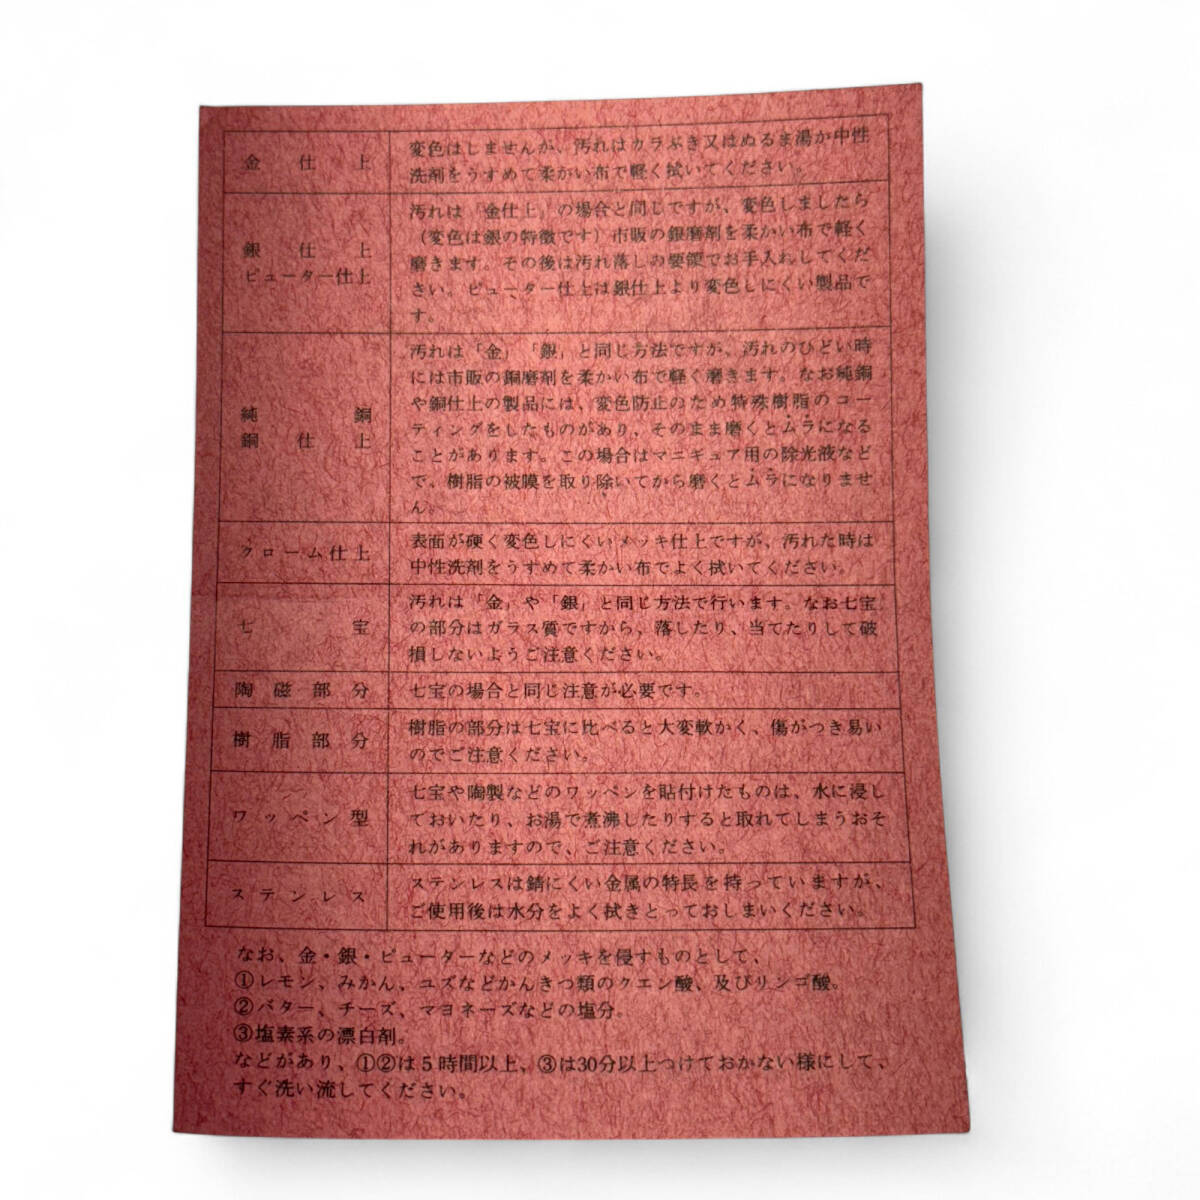 金仕上
変色はしませんが、汚れはカラぶき又はぬるま湯か中性
洗剤をうすめて柔かい布で軽く拭いてください。
銀仕上
ピューター仕上
汚れは「金仕上」の場合と同じですが、変色しましたら
（変色は銀の特徴です）市販の銀磨剤を柔かい布で軽く
磨きます。その後は汚れ落しの要領でお手入れしてくだ
さい。ピューター仕上は銀仕上より変色しにくい製品で
す。
純銅
銅仕上
汚れは「金」「銀」と同じ方法ですが、汚れのひどい時
には市販の銅磨剤を柔かい布で軽く磨きます。なお純銅
や銅仕上の製品には、変色防止のため特殊樹脂のコー
ティングをしたものがあり、そのまま磨くとムラになる
ことがあります。この場合はマニキュア用の除光液など
で、樹脂の被膜を取り除いてから磨くとムラになりませ
ん。
クローム仕上
表面が硬く変色しにくいメッキ仕上ですが、汚れた時は
中性洗剤をうすめて柔かい布でよく拭いてください。
七宝
汚れは「金」や「銀」と同じ方法で行います。なお七宝
の部分はガラス質ですから、落したり、当てたりして破
損しないようご注意ください。
陶磁部分
七宝の場合と同じ注意が必要です。
樹脂部分
樹脂の部分は七宝に比べると大変軟かく、傷がつき易い
のでご注意ください。
ワッペン型
七宝や陶製などのワッペンを貼付けたものは、水に浸し
ておいたり、お湯で煮沸したりすると取れてしまうおそ
れがありますので、ご注意ください。
ステンレス
ステンレスは錆にくい金属の特長を持っていますが、
ご使用後は水分をよく拭きとっておしまいください。
なお、金・銀・ピューターなどのメッキを侵すものとして、
①レモン、みかん、ユズなどかんきつ類のクエン酸、及びリンゴ酸。
②バター、チーズ、マヨネーズなどの塩分。
③塩素系の漂白剤。
などがあり、①②は５時間以上、③は30分以上つけておかない様にして、
すぐ洗い流してください。